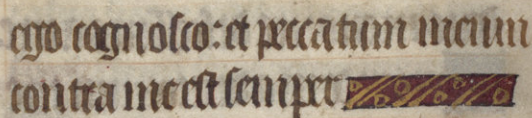 ego cognosco: et peccatum meum
contra me est semper